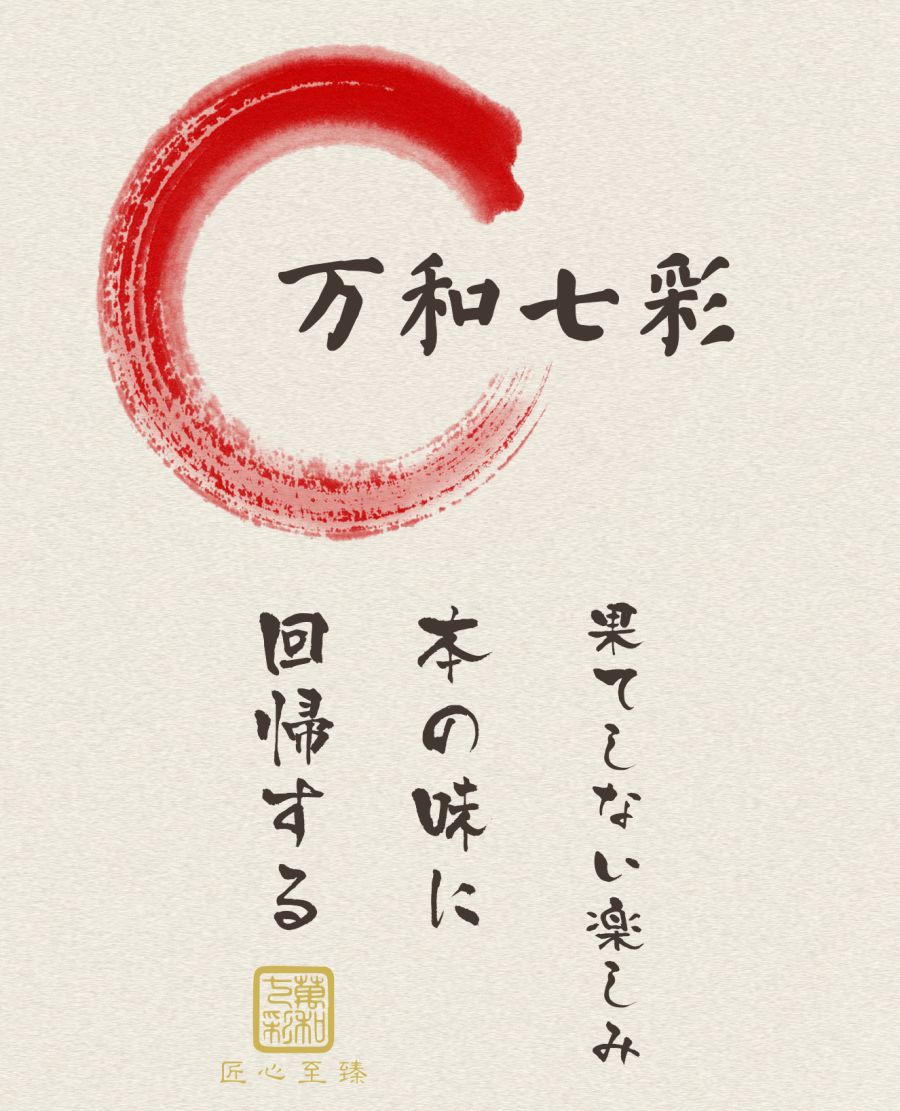 万和七彩
果てしない楽しみ
本の味に
回帰する
萬和
七彩
匠心至臻